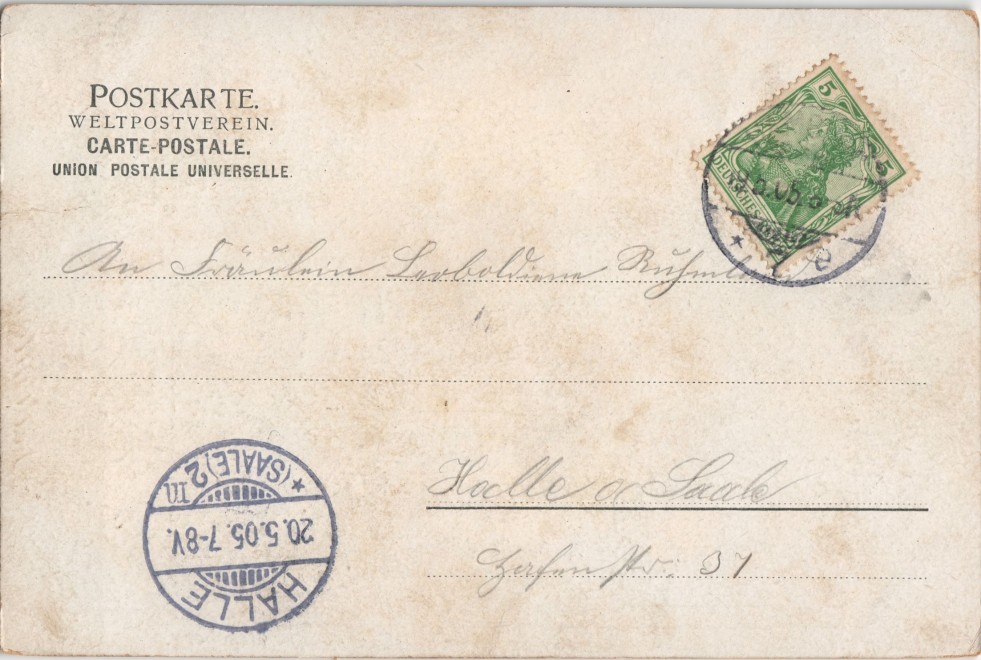 POSTKARTE.
WELTPOSTVEREIN.
CARTE-POSTALE.
UNION POSTALE UNIVERSELLE.
5 5
DEUTSCHES REICH
An Fräulein Leoboldiene
Halle a Saale
Hafenstr. 37
HALLE
20.5.05.7-8V.
*(SAALE)2 In